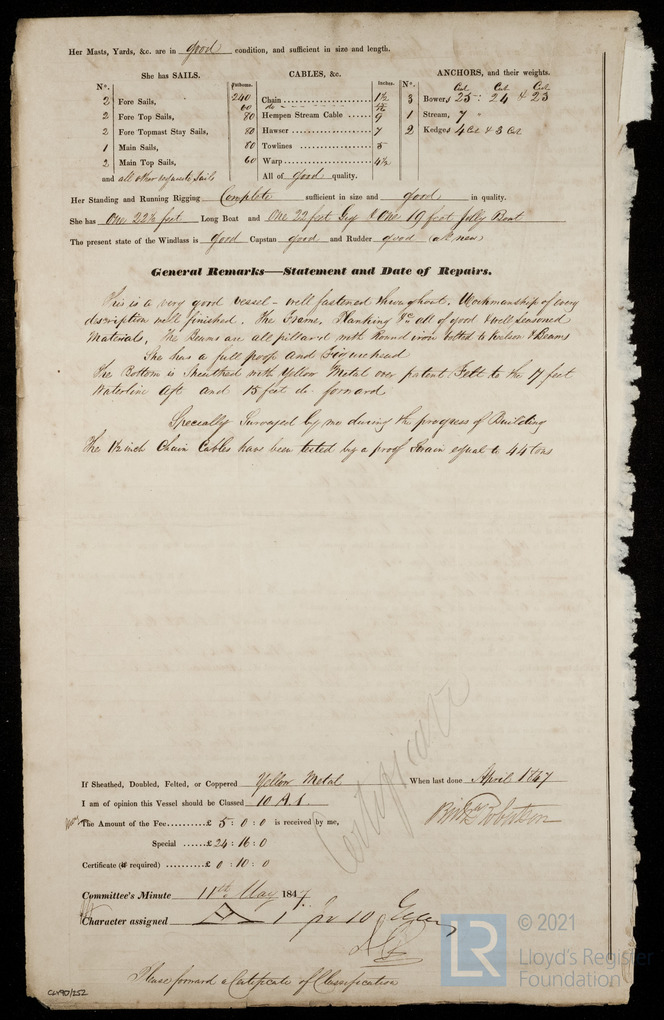 Her Masts, Yards, &c. are in good condition, and sufficient in size and length.
She has SAILS.
N°.
2 Fore Sails,
2 Fore Top Sails,
2 Fore Topmast Stay Sails,
1 Main Sails,
2 Main Top Sails,
and all other requisite Sails
CABLES, &c.
Fathoms. Inches.
240 Chain 1½
60 do
80 Hempen Stream Cable 9
80 Hawser 7
80 Towlines 5
60 Warp 4½
All of good quality.
ANCHORS, and their weights.
N°. Cwt Cwt Cwt
3 Bowers 25 : 24 & 23
1 Stream, 7
2 Kedges 4 Cwt & 3 Cwt
Her Standing and Running Rigging Complete sufficient in size and good in quality.
She has One 22½ feet Long Boat and One 22 feet Gig & One 19 feet Jolly Boat
The present state of the Windlass is good Capstan good and Rudder good (all new)
General Remarks—Statement and Date of Repairs.
This is a very good vessel - well fastened throughout. Workmanship of every
discription well finished. The Frame, Planking &c all of good & well seasoned
Materials, The Beams are all pillard with Round iron bolted to Kelson & Beams
She has a full poop and Figurehead
The Bottom is Sheathed with Yellow Metal over patent Felt to the 17 feet
Waterline Aft and 15 feet do. forward
Specially Surveyed by me during the progress of Building
The 1½ inch Chain Cables have been tested by a proof Strain equal to 44 tons
Certificate
If Sheathed, Doubled, Felted, or Coppered Yellow Metal When last done April 1847
I am of opinion this Vessel should be Classed 10 A.1.
The Amount of the Fee £ 5 : 0 : 0 is received by me,
Special £ 24 : 16 : 0
Certificate (if required) £ 0 : 10 : 0
Committee's Minute 11th May 1847.
Character assigned A 1 for 10
Please forward a Certificate of Classification
CLV90/252
© 2021
LR Lloyd's Register
Foundation